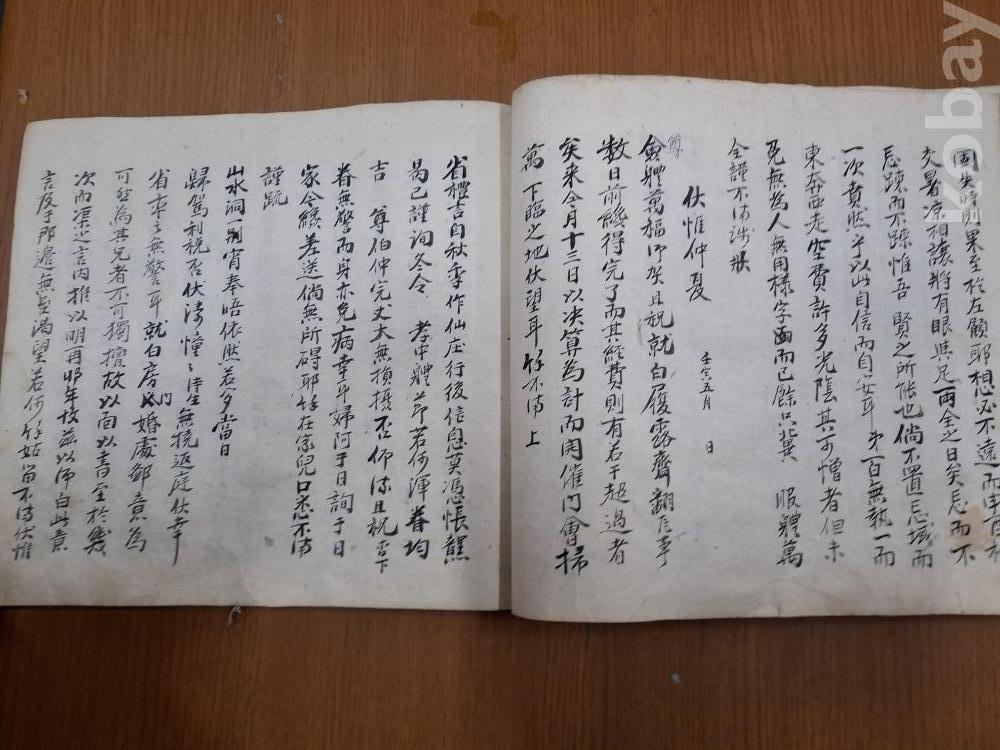 固失時則果至於左顧耶想必不遠而
交暑凉相讓將有眼與足兩全之日矣忘而不
忘踈而不踈惟吾 賢之所恃也倘不置忘域而
一次賁然乎以此自信而自安耳弟一百無執一而
東奔西走空費許多光陰其可憎者但未
免無為人無用樣字面而已餘只冀 服軆萬
全謹不備狀
壬 五月 日
伏惟仲夏
尊
僉軆萬福仰哭且祝就白履露齋翻瓦事
数日前纔得完了而其經費則有若干超過者
矣來今月十三日以决算為計而開催门會掃
萬 下臨之地伏望耳餘不備 上
省禮言自秋李作仙庄行後信息莫憑悵
曷已謹詢冬令 孝中體節若何渾眷均
吉 尊伯仲完丈大無損攝否仰 且祝 吉下
眷無警而身亦免病幸耳婦阿于日詢于日
家令纔差送倘無所碍耶餘在家兒口悉不備
謹疏
山水洞 宵奉晤依然若多當日
歸駕利稅否伏 憧〻 無撓返庭伏幸
省率 無警耳就白房 门婚處鄙意為
可 為其兄者不可獨擅故以面以書至於幾
次而渠之言内推以明再明年故玆以仰白此意
言及于那邊無至渴望若何餘姑留不備伏惟
kobay